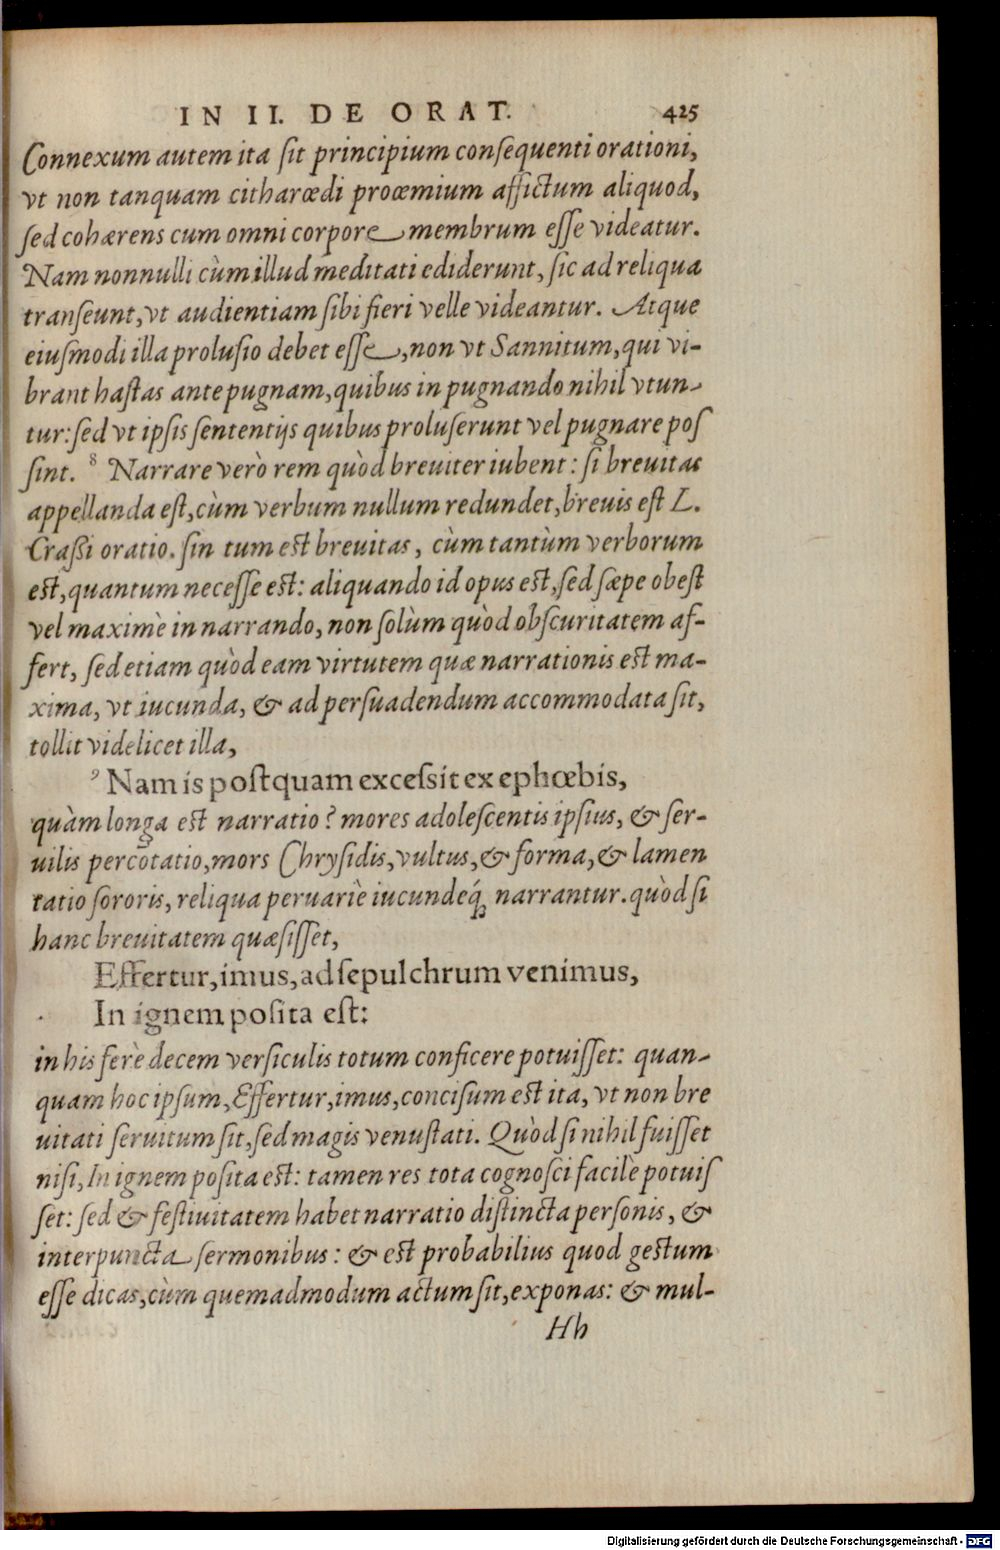 IN II. DE ORAT. 425
Connexum autem ita ſit principium conſequenti orationi,
vt non tanquam citharœdi proœmium affictum aliquod,
ſed cohærens cum omni corpore membrum eſſe videatur.
Nam nonnulli cùm illud meditati ediderunt, ſic ad reliqua
tranſeunt, vt audientiam ſibi fieri velle videantur. Atque
eiuſmodi illa proluſio debet eſſe, non vt Sannitum, qui vi-
brant haſtas ante pugnam, quibus in pugnando nihil vtun-
tur: ſed vt ipſis ſententijs quibus proluſerunt vel pugnare poſ
ſint. 8 Narrare verò rem quòd breuiter iubent: ſi breuitas
appellanda eſt, cùm verbum nullum redundet, breuis eſt L.
Craſſi oratio. ſin tum eſt breuitas, cùm tantùm verborum
eſt, quantum neceſſe eſt: aliquando id opus eſt, ſed ſæpe obeſt
vel maximè in narrando, non ſolùm quòd obſcuritatem af-
fert, ſed etiam quòd eam virtutem quæ narrationis eſt ma-
xima, vt iucunda, & ad perſuadendum accommodata ſit,
tollit videlicet illa,
9 Nam is poſtquam exceſsit ex ephœbis,
quàm longa eſt narratio? mores adoleſcentis ipſius, & ſer-
uilis percōtatio, mors Chryſidis, vultus, & forma, & lamen
tatio ſororis, reliqua peruariè iucundeq́; narrantur. quòd ſi
hanc breuitatem quæſiſſet,
Effertur, imus, ad ſepulchrum venimus,
In ignem poſita eſt:
in his ferè decem verſiculis totum conficere potuiſſet: quan-
quam hoc ipſum, Effertur, imus, conciſum eſt ita, vt non bre
uitati ſeruitum ſit, ſed magis venuſtati. Quòd ſi nihil fuiſſet
niſi, In ignem poſita eſt: tamen res tota cognoſci facilè potuiſ
ſet: ſed & feſtiuitatem habet narratio diſtincta perſonis, &
interpuncta ſermonibus: & eſt probabilius quod geſtum
eſſe dicas, cùm quemadmodum actum ſit, exponas: & mul-
Hh
Digitalisierung gefördert durch die Deutsche Forschungsgemeinschaft - DFG